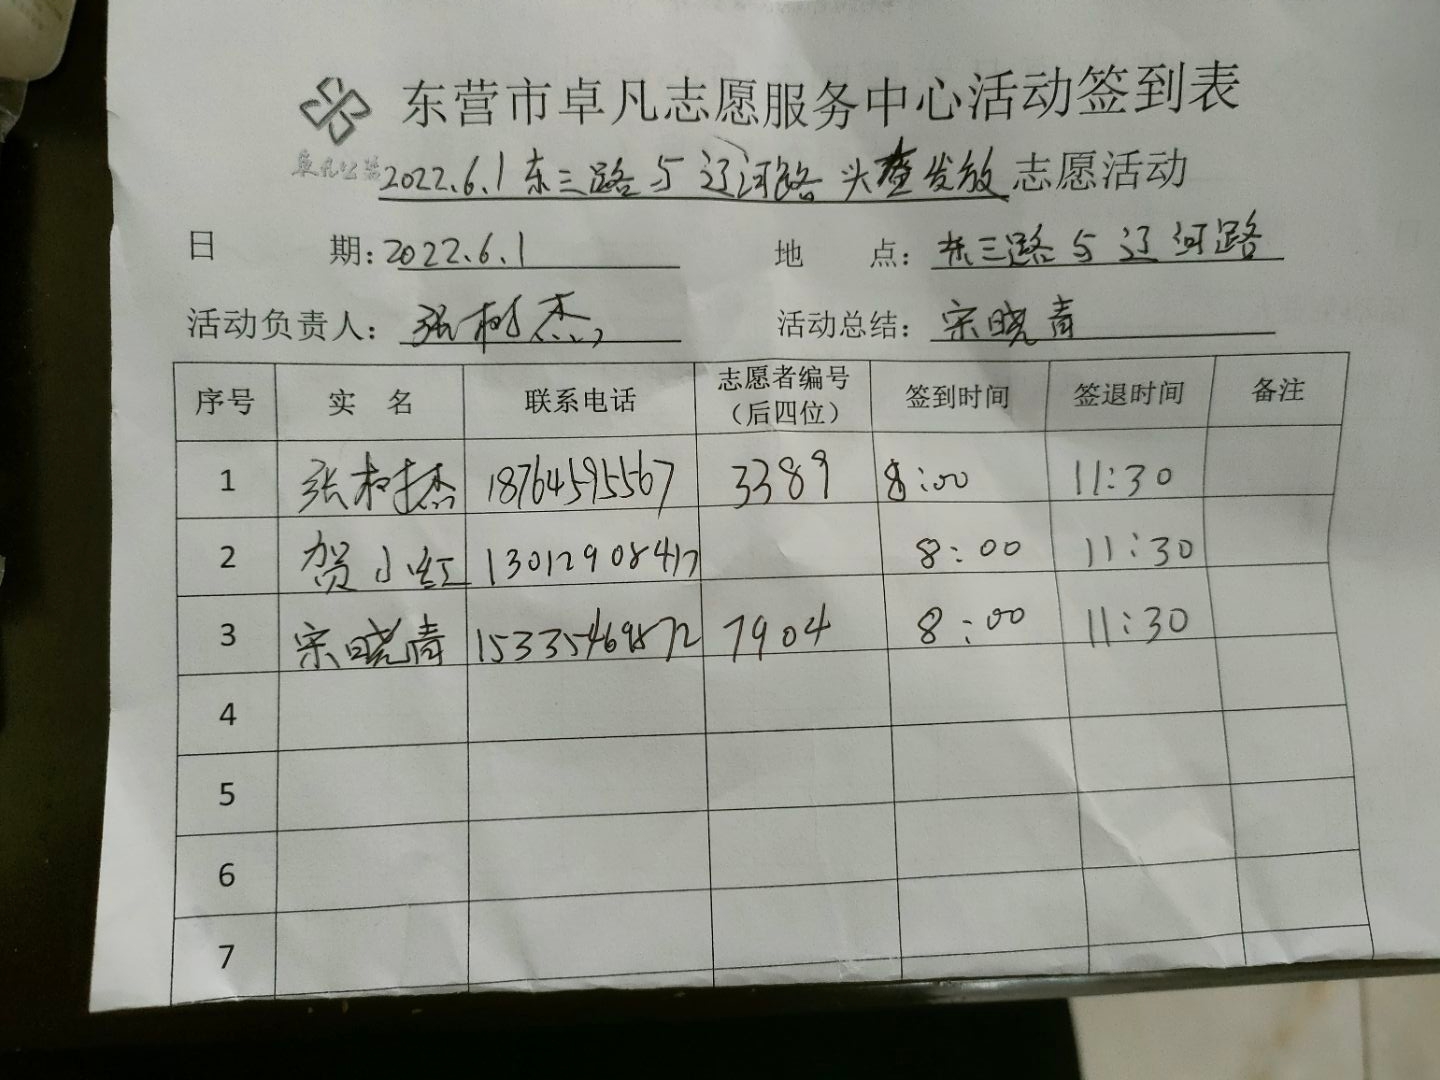 东营市卓凡志愿服务中心活动签到表
卓凡公益
2022.6.1东三路与辽河路头盔发放志愿活动
日 期：2022.6.1 地 点：东三路与辽河路
活动负责人：张树杰 活动总结：宋晓青
序号 实 名 联系电话 志愿者编号（后四位） 签到时间 签退时间 备注
1 张树杰 18764595567 3389 8:00 11:30
2 贺小红 13012908417 8:00 11:30
3 宋晓青 15335469872 7904 8:00 11:30
4
5
6
7